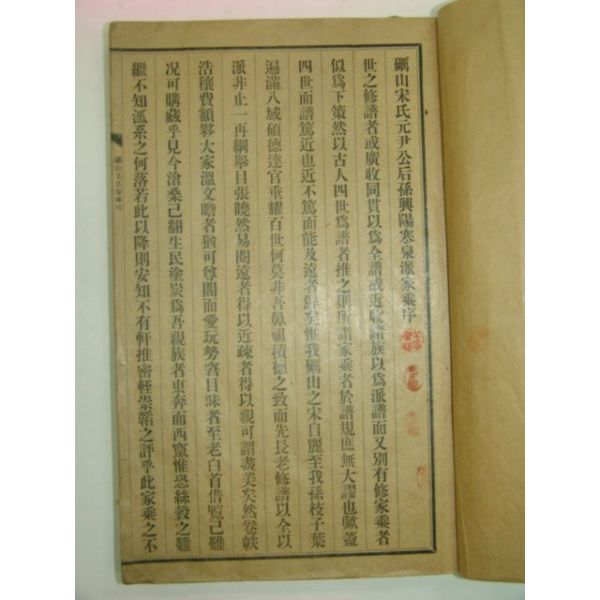 礪山宋氏元尹公后孫興陽寒泉派家乘序
世之修譜者或廣收同貫以爲全譜或近收譜族以爲派譜而又別有修家乘者
似爲下策然以古人四世爲譜者推之則所謂家乘者於譜規庶無大謬也歟蓋
四世而譜篤近也近不篤而能及遠者鮮矣惟我礪山之宋自麗至我孫枝子葉
遍滿八域碩德達官垂耀百世何莫非吾鼻祖積德之致而先長老修譜以全以
派非止一再綱擧目張曉然易閱遠者得以近疎者得以親可謂盡美矣然卷帙
浩穰費額夥大家溫文贍者猶可尊閣而愛玩勢窘目昧者至老白首借覽已難
况可購藏乎見今滄桑已翻生民塗炭爲吾親族者東奔而西竄惟恐絲穀之難
繼不知派系之何落若此以降則安知不有軒推密輊崇韜之評乎此家乘之不